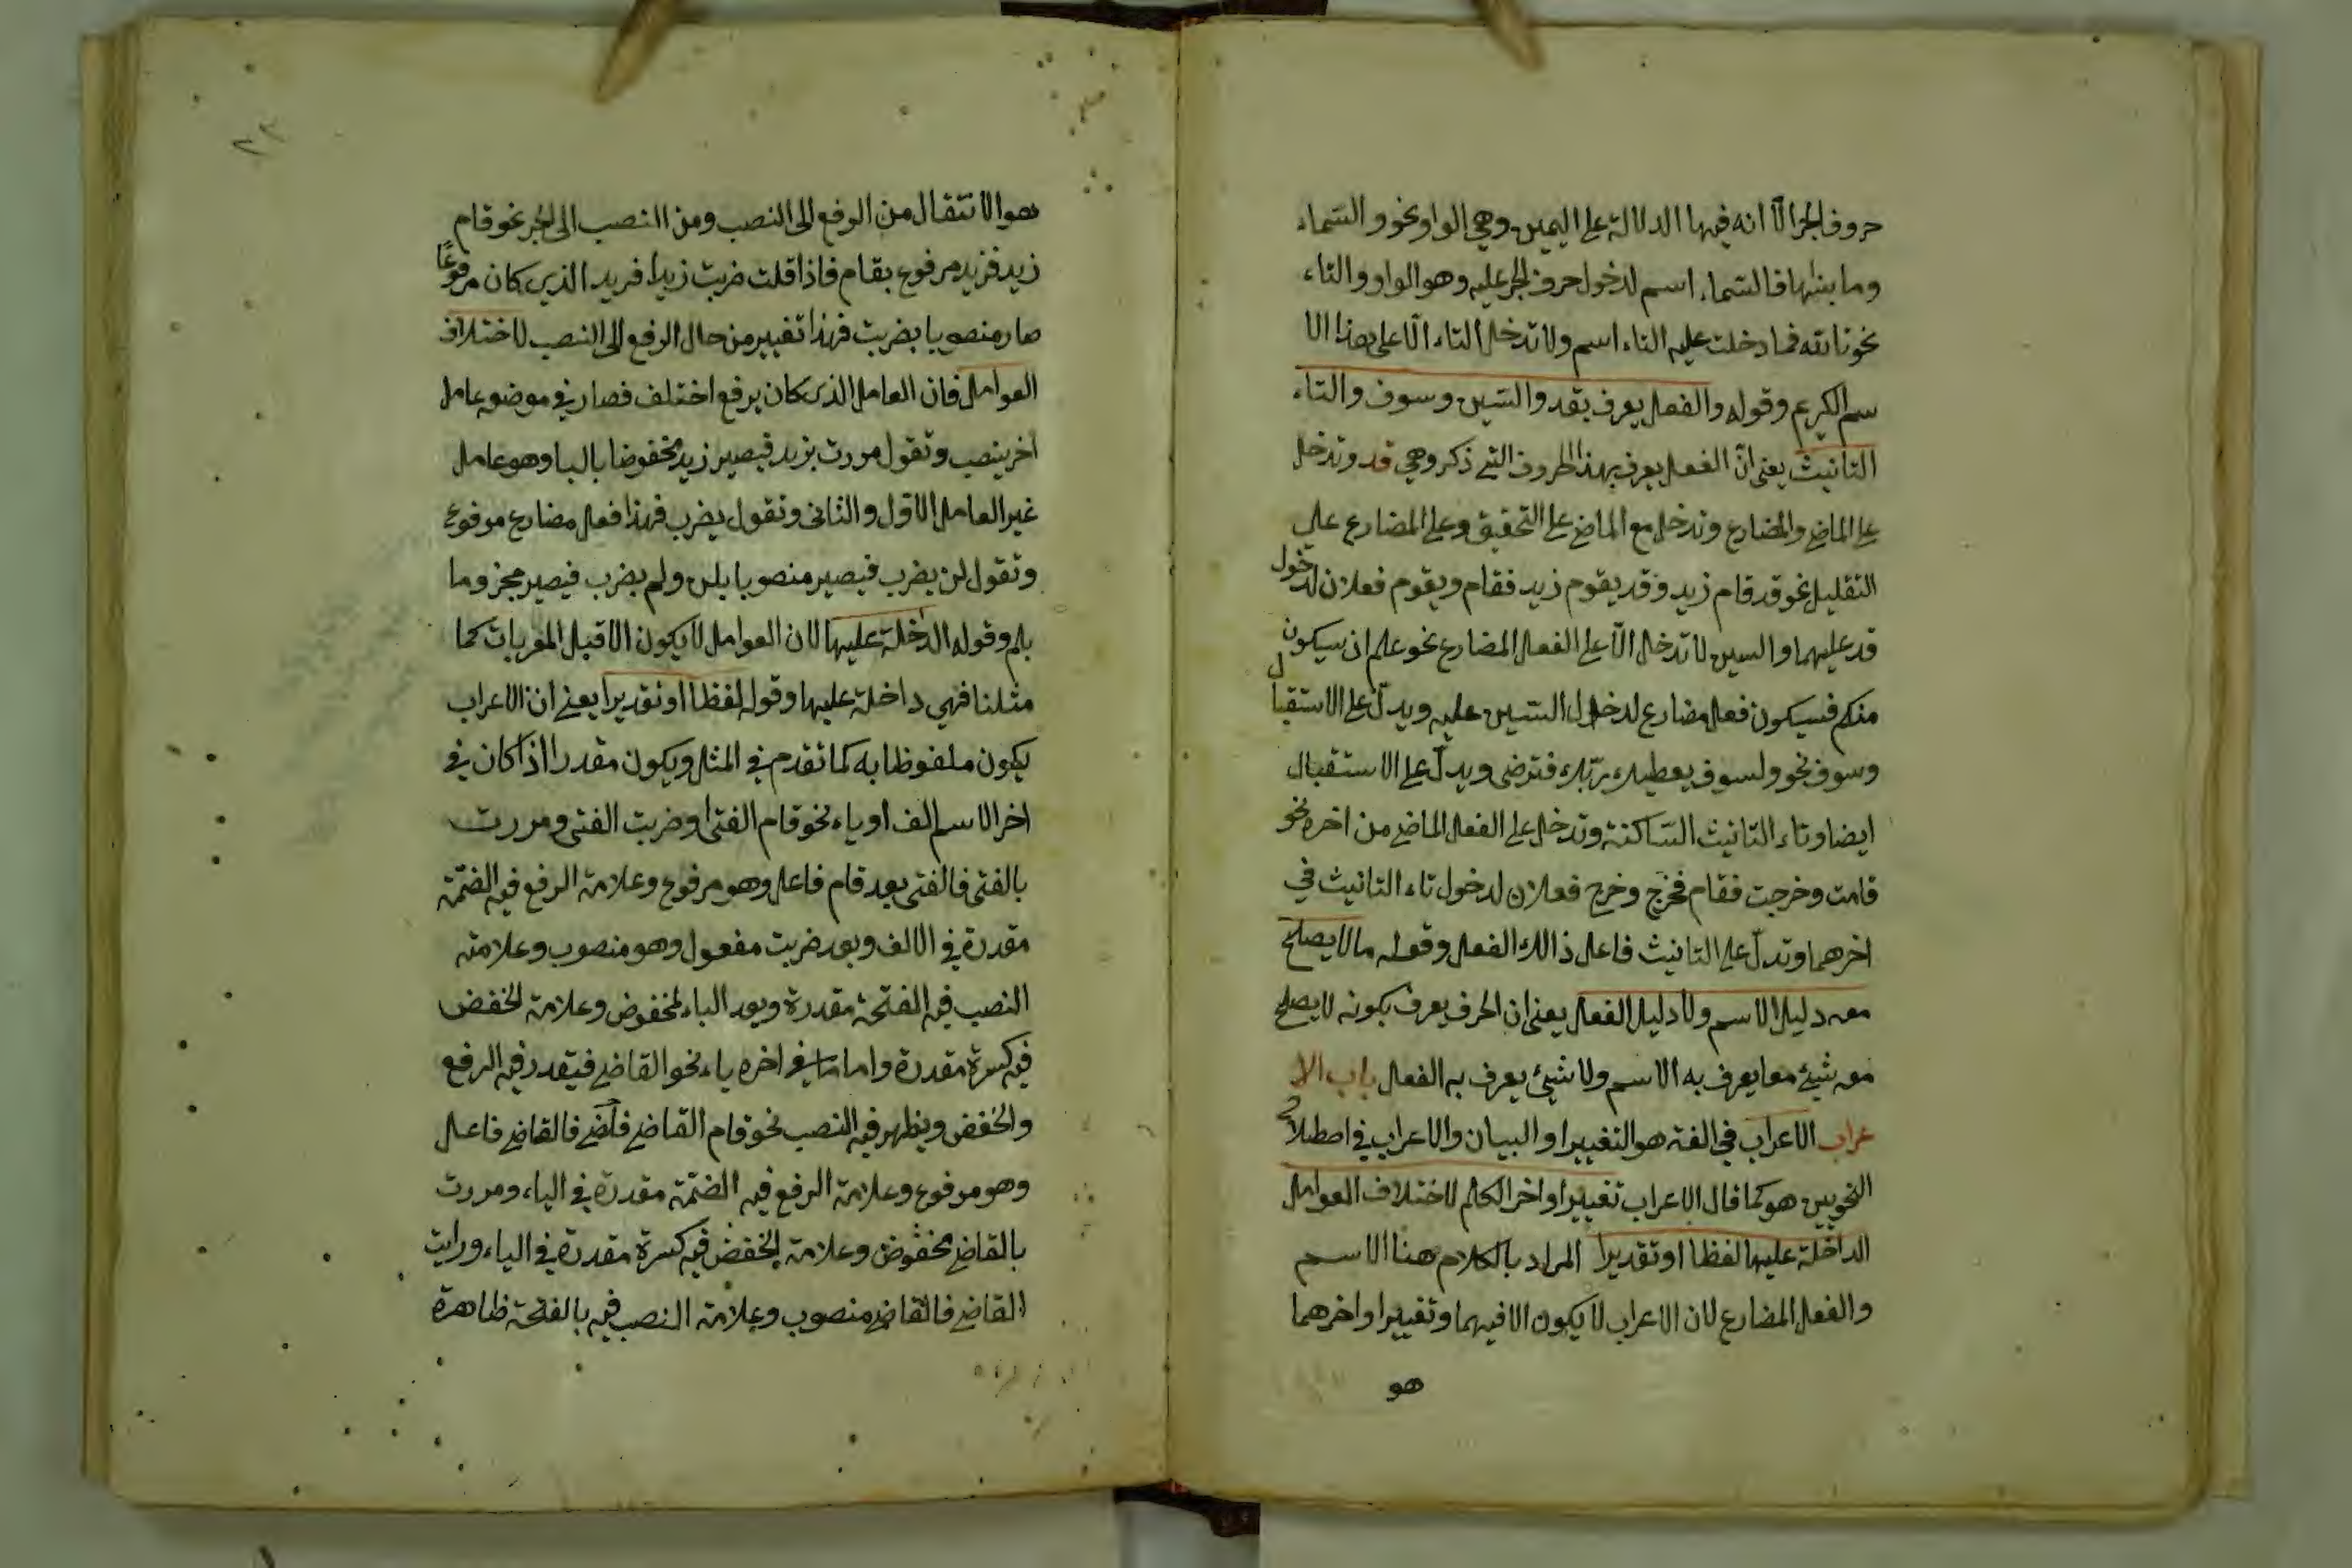 حروف الجر الّا انه فيها الدلالة على اليمين وهي الواو نحو والسّماء
وما بنيها فالسّماء اسم لدخول حرف الجر عليه وهو الواو والتاء
نحو تالله فما دخلت عليه التاء اسم ولا تدخل التاء الّا على هذا الا
سم الكريم وقوله والفعل يعرف بقد والسّين وسوف والتاء
التانيث يعني انّ الفعل يعرف بهذا الحروف التي ذكر وهي قد وتدخل
على الماضي والمضارع وتدخل مع الماضي على التحقيق وعلى المضارع على
التقليل نحو قد قام زيد وقد يقوم زيد فقام ويقوم فعلان لدخول
قد عليهما والسين لا تدخل الّا على الفعل المضارع نحو علم ان سيكون
منكم فسيكون فعل مضارع لدخول السّين عليه ويدلّ على الاستقبال
وسوف نحو ولسوف يعطيك ربّك فترضى ويدلّ على الاستقبال
ايضا وتاء التانيث السّاكنة وتدخل على الفعل الماضي من اخره نحو
قامت وخرجت فقام فخرج وخرج فعلان لدخول تاء التانيث في
اخرهما وتدلّ على التانيث فاعل ذالك الفعل وقوله ما لا يصلح
معه دليل الاسم ولا دليل الفعل يعني ان الحرف يعرف بكونه لا يصلح
معه شيئ مما يعرف به الاسم ولا شيئ يعرف به الفعل باب الا
عراب الاعراب في الغة هو التغيير او البيان والاعراب في اصطلاح
النحويين هو كما قال الاعراب تغيير او اخر الكلم لاختلاف العوامل
الداخلة عليها لفظا او تقديرا المراد بالكلام هنا الاسم
والفعل المضارع لان الاعراب لا يكون الا فيهما وتغيير اواخرهما
هو
٢٣
هو الانتقال من الرفع الى النصب ومن النصب الى الجر نحو قام
زيد فزيد مرفوع بقام فاذا قلت ضربت زيدا فزيدا الذي كان مرفوعًا
صار منصوبا بضربت فهذا تغيير من حال الرفع الى النصب لاختلاف
العوامل فان العامل الذي كان يرفع اختلف فصار في موضعه عامل
اخر ينصب وتقول مررت بزيد فيصير زيد مخفوضا بالبا وهو عامل
غير العامل الاوّل والثاني وتقول يضرب فهذا فعل مضارع مرفوع
وتقول لن يضرب فيصير منصوبا بلن ولم يضرب فيصير مجزوما
بلم وقوله الداخلة عليها لان العوامل لا يكون الا قبل المعربات كما
مثلنا فهي داخلة عليها وقوله لفظا او تقديرا يعني ان الاعراب
يكون ملفوظا به كما تقدم في المثل ويكون مقدرا اذا كان في
اخر الاسم الف او ياء نحو قام الفتى وضربت الفتى ومررت
بالفتى فالفتى بعد قام فاعل وهو مرفوع وعلامة الرفع فيه الضمّة
مقدرة في الالف وبعد ضربت مفعول وهو منصوب وعلامته
النصب فيه الفتحة مقدرة وبعد الباء مخفوض وعلامة الخفض
فيه كسرة مقدرة واما ما في اخره ياء نحو القاضي فيقدر فيه الرفع
والخفض ويظهر فيه النصب نحو قام القاضي فالقاضي فاعل
وهو مرفوع وعلامة الرفع فيه الضمّة مقدرة في الياء ومررت
بالقاضي مخفوض وعلامة الخفض فيه كسرة مقدرة في الياء ورايت
القاضي فالقاضي منصوب وعلامة النصب فيه بالفتحة ظاهرة